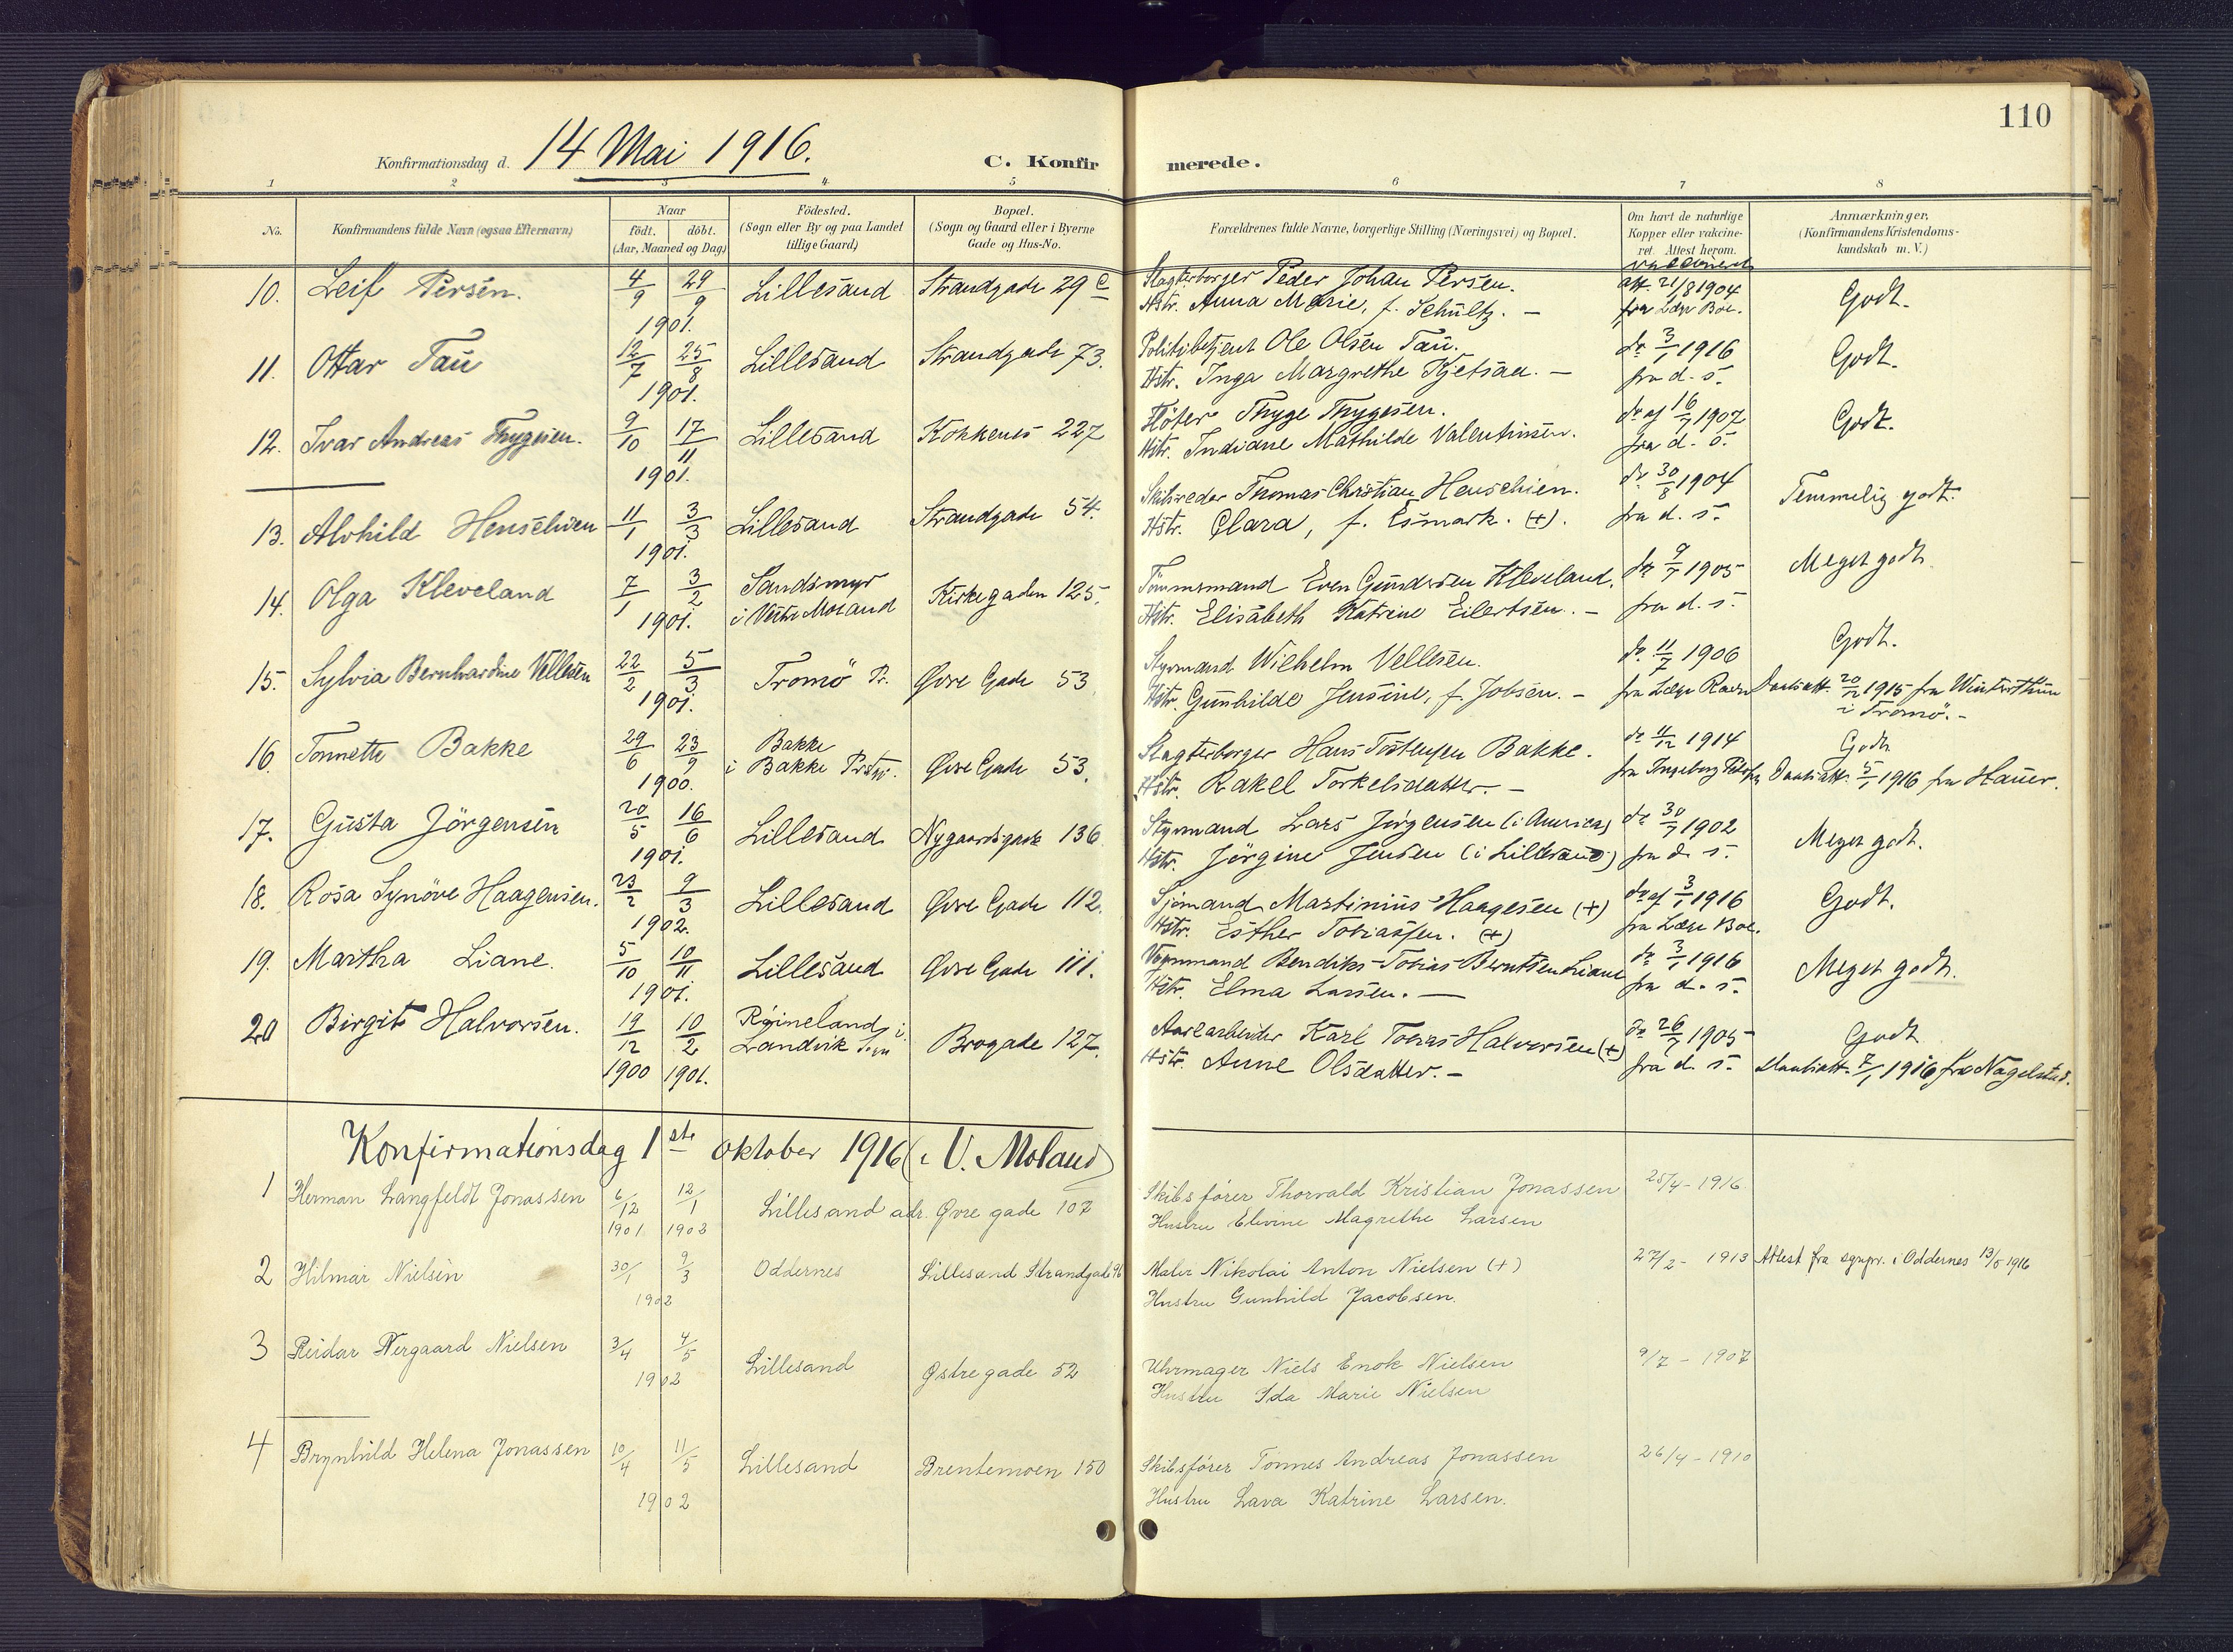 110
Konfirmationsdag d. 14 Mai 1916. C. Konfir merede.
1 2 3 4 5 6 7 8
No. Konfirmandens fulde Navn (ogsaa Efternavn) Naar født. døbt. (Aar, Maaned og Dag) Fødested. (Sogn eller By og paa Landet tillige Gaard) Bopæl. (Sogn og Gaard eller i Byerne Gade og Hus-No. Forældrenes fulde Navne, borgerlige Stilling (Næringsvei) og Bopæl. Om havt de naturlige Kopper eller vakcineret. Attest herom. Anmærkninger. (Konfirmandens Kristendomskundskab m. V.)
10. Leif Persen. 4/9 29/9 Lillesand Strandgade 29 c Slagterborger Peder Johan Persen. att. 21/8 1904 Godt.
1901. Hstr. Anna Marie, f. Schültz. - fra Læge Boe.
11. Ottar Tau 12/7 25/8 Lillesand Strandgade 73. Politibetjent Ole Olsen Tau. do 3/1 1916 Godt.
1901. Hstr. Inga Margrethe Kjetsaa. - fra d. s.
12. Ivar Andreas Thygesen. 9/10 17/11 Lillesand Kokkenes 227 Fløter Thyge Thygesen. do af 16/7 1907 Godt.
1901. Hstr. Indiane Mathilde Valentinsen. fra d. s.
13. Alvhild Henschien 11/1 3/3 Lillesand Strandgade 54. Skibsreder Thomas Christian Henschien. do 30/8 1904 Temmelig godt.
1901. Hstr. Clara, f. Esmark. (+). fra d. s.
14. Olga Kleveland 7/1 3/2 Sandsmyr i Vestre Moland Kirkegaden 125. Tømmermand Even Gundersen Kleveland. do 9/7 1905 Meget godt.
1901. Hstr. Elisabeth Katrine Eilertsen. - fra d. s.
15. Sylvia Bernhardine Vellesen 22/2 5/3 Tromö Pr. Øvre Gade 53 Styrmand Wilhelm Vellesen. do. 11/7 1906 Godt.
1901. Hstr. Gunhilde Jensine, f. Jobsen. - fra Læge Daabsatt. 20/12 1915 fra Winterthun i Tromö. -
16. Tonnette Bakke 29/6 23/9 Bakke i Bakke Prstgj. Øvre Gade 53. Slagterborger Hans Bakke. do 11/12 1914 Godt
1900. Hstr. Rakel Torkelsdatter. - fra Ingeborg Daabsatt. 5/1 1916 fra Hauer.
17. Gusta Jörgensen 20/5 16/6 Lillesand Nygaardsgade 136 Styrmand Lars Jörgensen (i America) do 30/7 1902 Meget godt.
1901. Hstr. Jörgine Jensen (i Lillesand) fra d. s.
18. Rosa Synöve Haagensen. 23/2 9/3 Lillesand Øvre Gade 112. Sjömand Martinius Haagesen (+) do af 3/1 1916 Godt.
1902. Hstr. Esther Tobiassen. (+) fra Læge Boe.
19. Martha Liane. 5/10 10/11 Lillesand Øvre Gade 111. Vognmand Bendiks Tobias Berntsen Liane do 3/1 1916 Meget godt.
1901. Hstr. Elma Larsen. - fra d. s.
20 Birgit Halvorsen. 19/12 10/2 Röineland i Landvik Sogn Brogade 127. Karl Tobias Halvorsen (+) do 26/7 1905 Godt
1900 1901. Hstr. Anne Olsdatter. - fra d. s. Daabsatt. 7/1 1916 fra Nagelstad.
Konfirmationsdag 1ste oktober 1916 (i V. Moland)
1 Herman Langfeldt Jonassen 6/12 1901 12/1 1902 Lillesand adr. Øvre gade 107 Skibsfører Thorvald Kristian Jonassen 25/4 - 1916
Hustru Elevine Magrethe Larsen
2 Hilmar Nielsen 30/1 9/3 Oddernes Lillesand Strandgade 96 Maler Nikolai Anton Nielsen (+) 27/2 - 1913 Attest fra sgnpr. i Oddernes 13/5 1916
1902 Hustru Gunhild Jacobsen.
3 Reidar Nergaard Nielsen 3/4 4/5 Lillesand Østre gade 52 Uhrmager Niels Enok Nielsen 9/7 - 1907
1902 Hustru Ida Marie Nielsen
4 Brynhild Helena Jonassen 10/4 11/5 Lillesand Brentemoen 150 Skibsfører Tönnes Andreas Jonassen 26/4 - 1910
1902 Hustru Lava Katrine Larsen.